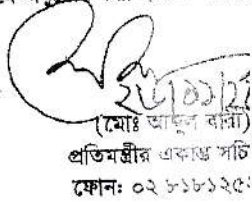 ২৬/০১/২
(মোঃ আব্দুল বারী)
প্রতিমন্ত্রীর একান্ত সচি
ফোন: ০২ ৮১৮১২৫